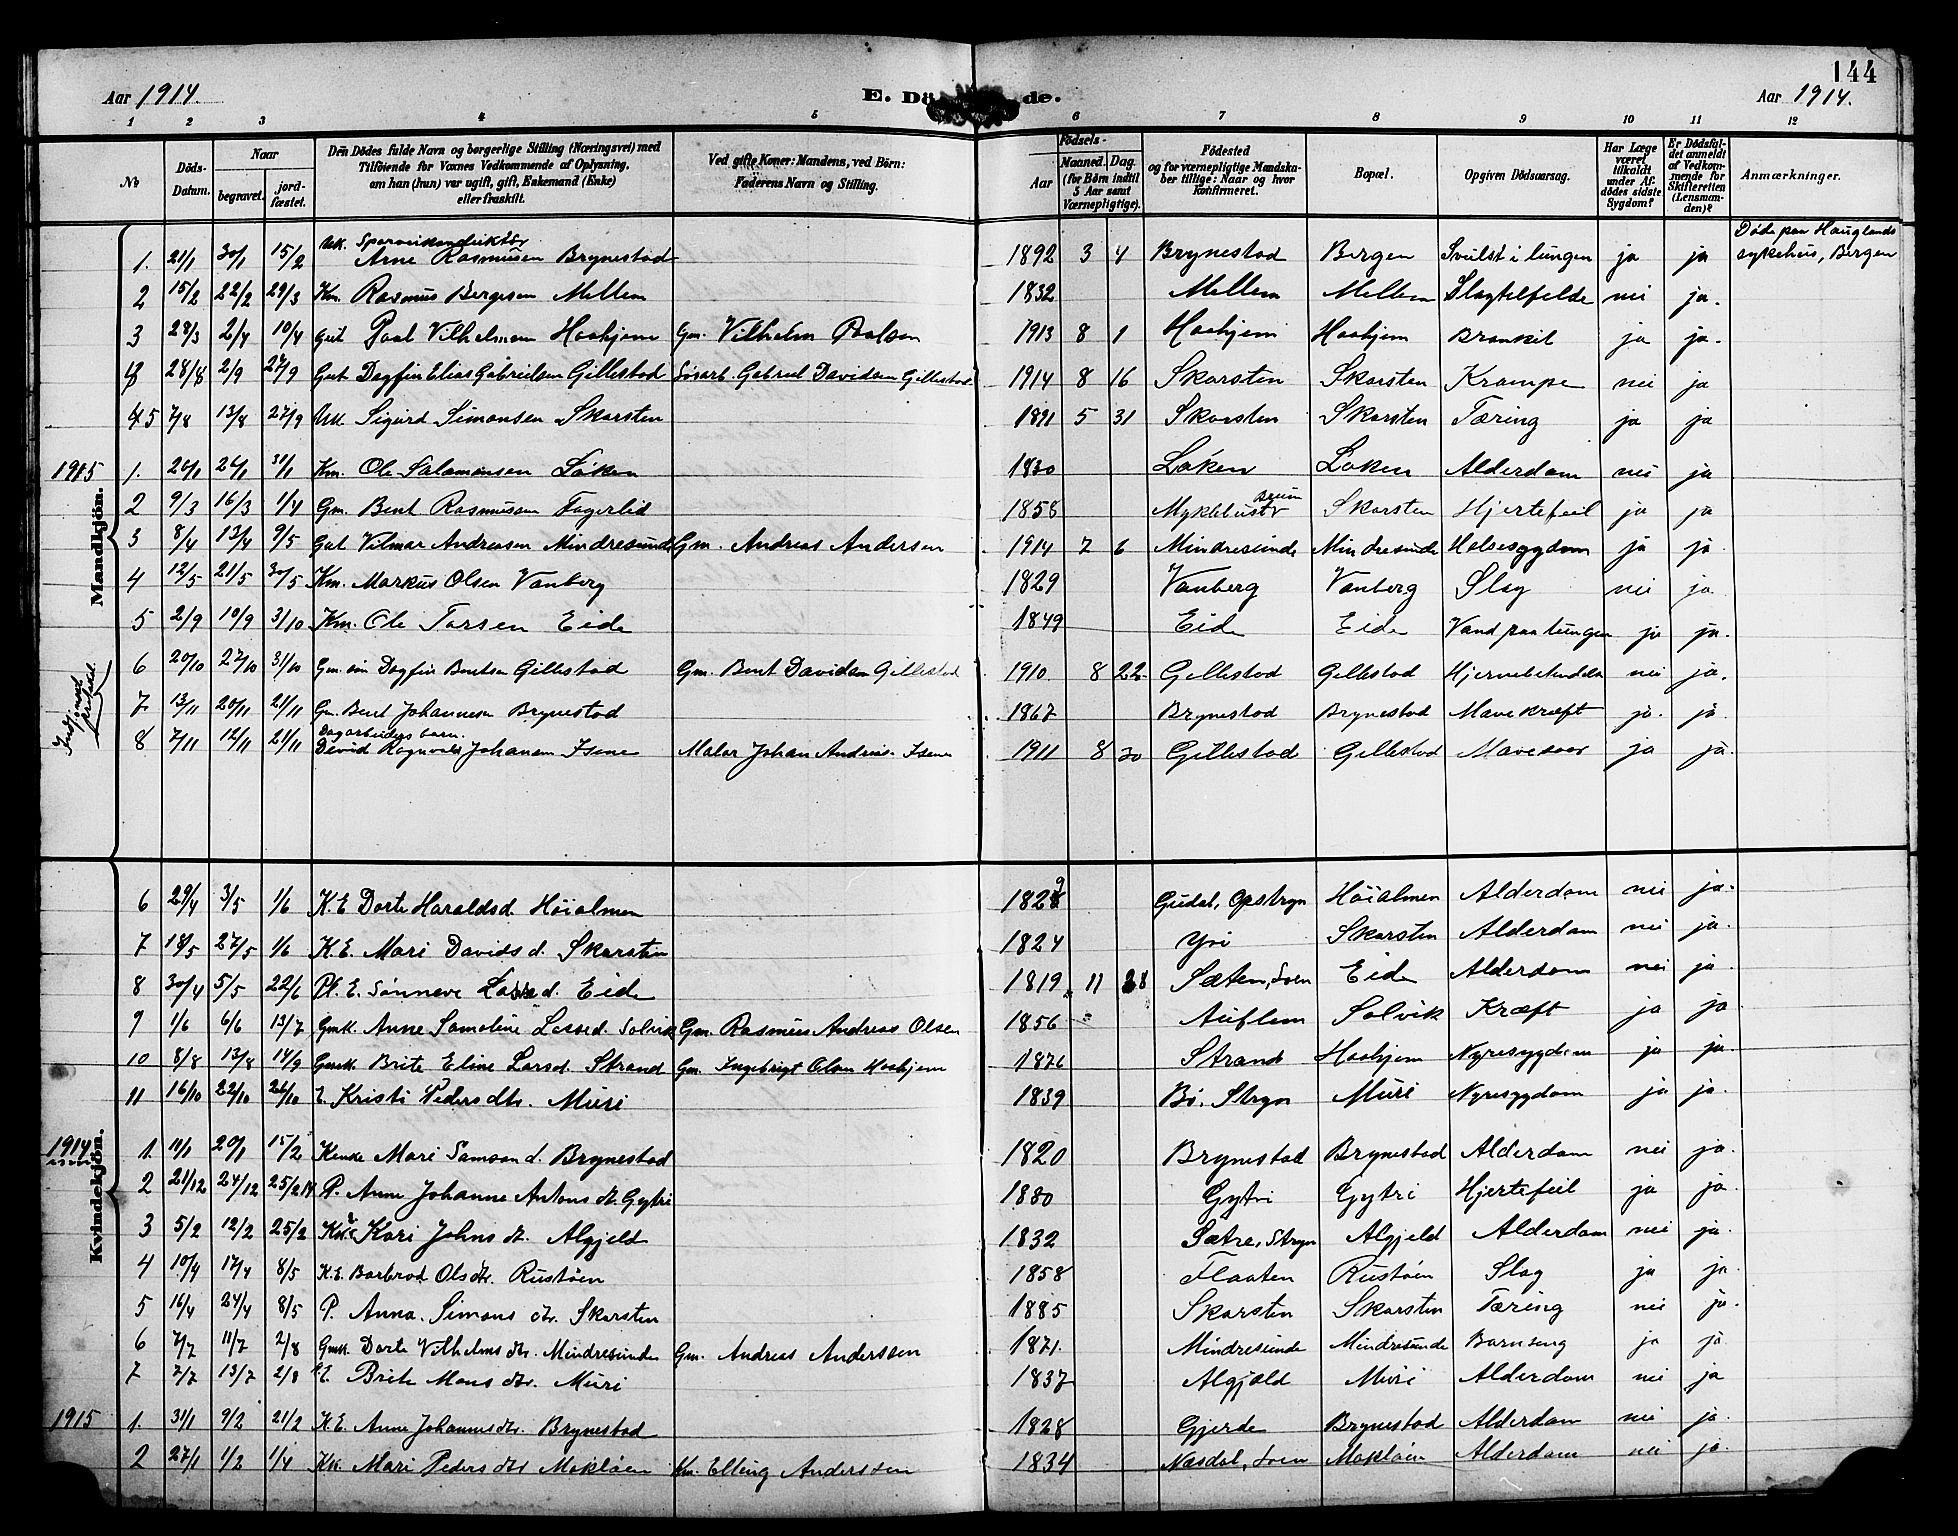 144
Aar 1914. E. Dö de. Aar 1914.
1 2 3 4 5 6 7 8 9 10 11 12
No
Döds-Datum.
Naar
begravet.
jord-fæstet.
Den Dödes fulde Navn og borgerlige Stilling (Næringsvei) med
Tilföiende for Voxnes Vedkommende af Oplysning,
om han (hun) var ugift, gift, Enkemand (Enke)
eller fraskilt.
Ved gifte Koner: Mandens, ved Börn:
Faderens Navn og Stilling.
Födsels-
Aar
Maaned. Dag.
(for Börn indtil
5 Aar samt
Værnepligtige).
Födested
og for værnepligtige Mandska-
ber tillige: Naar og hvor
konfirmeret.
Bopæl.
Opgiven Dödsaarsag.
Har Læge
været
tilkaldt
under Af-
dödes sidste
Sygdom?
Er Dödsfal-
det anmeldt
af Vedkom-
mende for
Skifteretten
(Lensman-
den)?
Anmærkninger.
Mandkjön.
Uk. Sporveiskonduktør Døde paa Hauglands
1. 21/1 30/1 15/2 Arne Rasmusen Brynestad 1892 3 4 Brynestad Bergen Svulst i lungen ja ja sykehus, Bergen
2 15/2 22/2 29/3 Km. Rasmus Bergesen Mellem 1832 Mellem Mellem Slagtilfelde nei ja.
3 28/3 2/4 10/4 Gut Paal Vilhelmsen Haahjem Gm. Vilhelm Paalsen 1913 8 1 Haahjem Haahjem Bronkit ja ja.
28/8 2/9 27/9 Gut Dagfin Elias Gabrielsen Gillestad Gabriel Davidsen Gillestad 1914 8 16 Skarsten Skarsten Krampe nei ja
5 7/8 13/8 27/9 Uk. Sigurd Simonsen Skarsten 1891 5 31 Skarsten Skarsten Tæring ja ja
1915 1. 20/1 26/1 31/1 Km. Ole Salamonsen Løken 1830 Løken Løken Alderdom nei ja
2 9/3 16/3 1/4 Gm. Bent Rasmussen Fagerlid 1858 Myklebust Breim Skarsten Hjertefeil ja ja
3 8/4 13/4 9/5 Gut Vilmar Andreasen Mindresunde Gm. Andreas Andersen 1914 7 6 Mindresunde Mindresunde Halssygdom ja ja.
4 12/5 21/5 30/5 Km. Markus Olsen Vanberg 1829 Vanberg Vanberg Slag nei ja
5 2/9 10/9 3/10 Km. Ole Torsen Eide 1849 Eide Eide Vand paa lungen ja ja.
6 20/10 27/10 31/10 Gm. søn Dagfin Bentsen Gillestad Gm. Bent Davidsen Gillestad 1910 8 22 Gillestad Gillestad nei ja.
7 13/11 20/11 21/11 Gm. Bent Johannesen Brynestad 1867 Brynestad Brynestad Mavekræft ja. ja.
Dagarbeiders barn.
8 7/11 12/11 21/11 David Ragnvald Johansen Isene Maler Johan Andreas Isene 1911 8 20 Gillestad Gillestad Mavesaar ja ja.
Kvindekjön.
6 29/4 3/5 1/6 K.E. Dorte Haraldsd. Høialmen 1829 Gudal, Opstryn Høialmen Alderdom nei ja.
7 18/5 27/5 1/6 K.E. Mari Davidsd. Skarsten 1824 Yri Skarsten Alderdom nei ja.
8 30/4 5/5 22/6 Pl. E. Sønneve Lassed. Eide 1819 11 28 Sæten, Loen Eide Alderdom nei ja.
9 1/6 6/6 13/7 Gmk. Anne Samoline Lassed. Solvik Gm. Rasmus Andreas Olsen 1856 Auflem Solvik Kræft ja ja
10 8/8 13/8 14/9 Gmk. Brite Eline Larsd. Strand Gm. Ingebrigt Olsen Haahjem 1876 Strand Haahjem Nyresygdom ja ja.
11 16/10 22/10 26/10 E. Kristi Pedersdtr. Muri 1839 Bø, Stryn Muri Nyresygdom ja ja.
1914 1. 11/1 20/1 15/2 Kenke Mari Samsond. Brynestad 1820 Brynestad Brynestad Alderdom nei ja.
2 21/12 24/12 25/2 14 P. Anne Johanne Antonsdt. Gytri 1880 Gytri Gytri Hjertefeil ja ja.
3 5/2 12/2 25/2 Kari Johnsdt. Algjeld 1832 Sætre, Stryn Algjeld Alderdom nei ja.
4 10/4 17/4 8/5 K.E. Barbrod Olsdtr. Rustøen 1858 Flaaten Rustøen Slag ja ja.
5 16/4 24/4 8/5 P. Anna Simonsdtr. Skarsten 1885 Skarsten Skarsten Tæring nei ja.
6 7/7 11/7 2/8 Gmk. Dorte Vilhelmsdtr. Mindresunde Gm. Andreas Anderssen 1871. Mindresunde Mindresunde Barnseng ja ja.
7 7/7 13/7 2/8 E Brite Monsdtr. Muri 1837 Algjeld Muri Alderdom nei ja
1915 1. 31/1 9/2 21/2 K.E. Anne Johannesdtr. Brynestad 1828 Gjerde Brynestad Alderdom nei ja.
2 27/1 1/2 1/4 Kk. Mari Pedersdtr Mokløen Km. Elling Anderssen 1834 Næsdal, Loen Mokløen Alderdom nei ja.